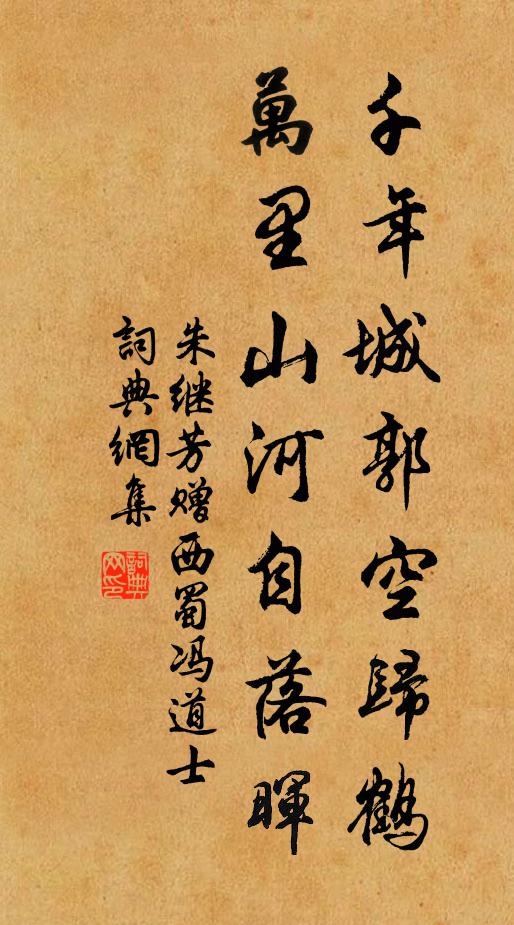 千年城郭空歸鶴
萬里山河自落暉
朱继芳赠西蜀冯道士
詞典網集
詞典網印